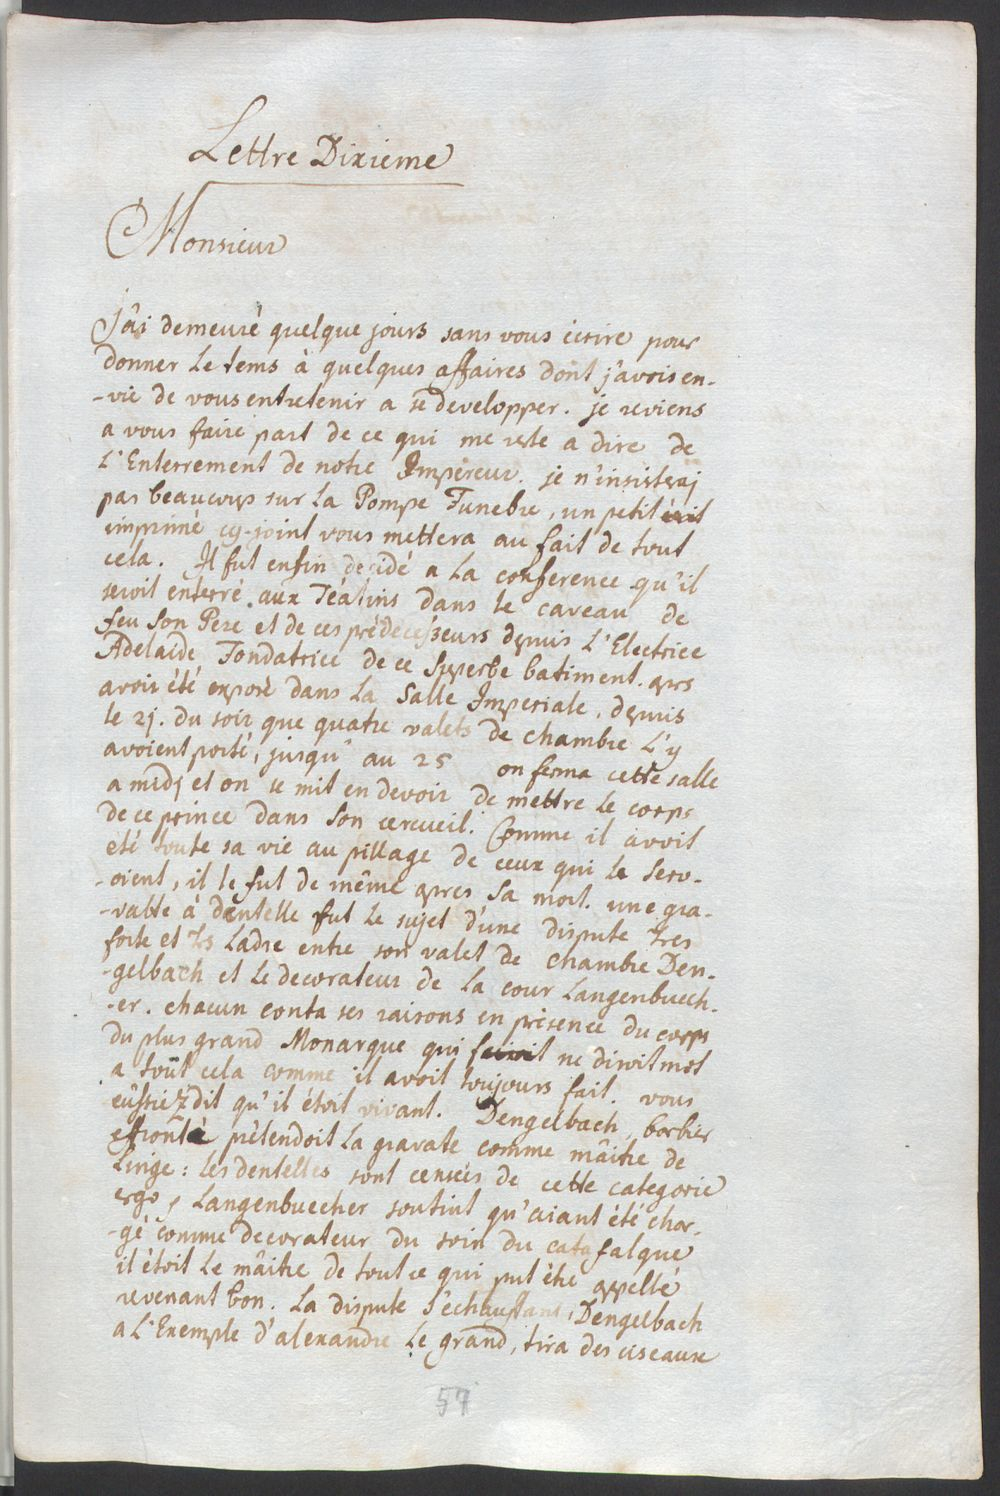 Lettre Dixieme
Monsieur
J'ai demeuré quelque jours sans vous écrire pour
donner le tems à quelques affaires dont j'avois en-
-vie de vous entretenir a se developper. je reviens
a vous faire part de ce qui me reste a dire de
L'Enterrement de notre Empereur. je n'insisteraj
pas beaucoup sur la Pompe Funebre, un petit écrit
imprimé cy-joint vous mettera au fait de tout
cela. Il fut enfin decidé a la conference qu'il
seroit enterré aux Téatins dans le caveau de
feu son Pere et de ces prédecesseurs depuis L'Electrice
Adelaide Fondatrice de ce superbe batiment. aprs
avoir été exposé dans la Salle Imperiale, depuis
le 21. du soir que quatre valets de chambre L'y
avoient porté, jusqu' au 25 on ferma cette salle
a midj et on se mit en devoir de mettre le corps
de ce prince dans son cercueil. Comme il avoit
été toute sa vie au pillage de ceux qui le serv-
-oient, il le fut de même apres sa mort. une gra-
-vatte à dentelle fut le sujet d'une dispute tres
forte et trs ladre entre son valet de chambre Den-
-gelbach et le decorateur de la cour Langenbuech-
-er. chacun conta ses raisons en présence du corps
du plus grand Monarque qui ne disoit mot
a tout cela comme il avoit toujours fait. vous
eussiez dit qu'il étoit vivant. Dengelbach, barbier
effronté prétendoit la gravate comme mâitre de
Linge: les dentelles sont censées de cette categorie
ergo, Langenbuecher soutint qu'aiant été char-
-gé comme decorateur du soin du catafalque
il étoit le mâitre de tout ce qui put être appellé
revenant bon. La dispute s'echauffant, Dengelbach
a L'Exemple d'alexandre le grand, tira des ciseaux
57